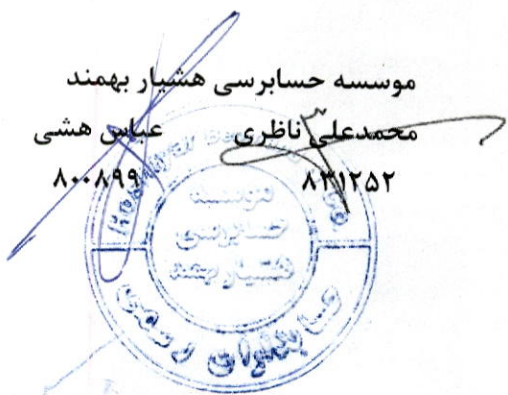 موسسه حسابرسی هشیار بهمند
محمدعلی ناظری عباس هشی
۸۳۱۲۵۲ ۸۰۰۸۹۹
موسسه
حسابرسی
هشیار بهمند
حسابداران رسمی